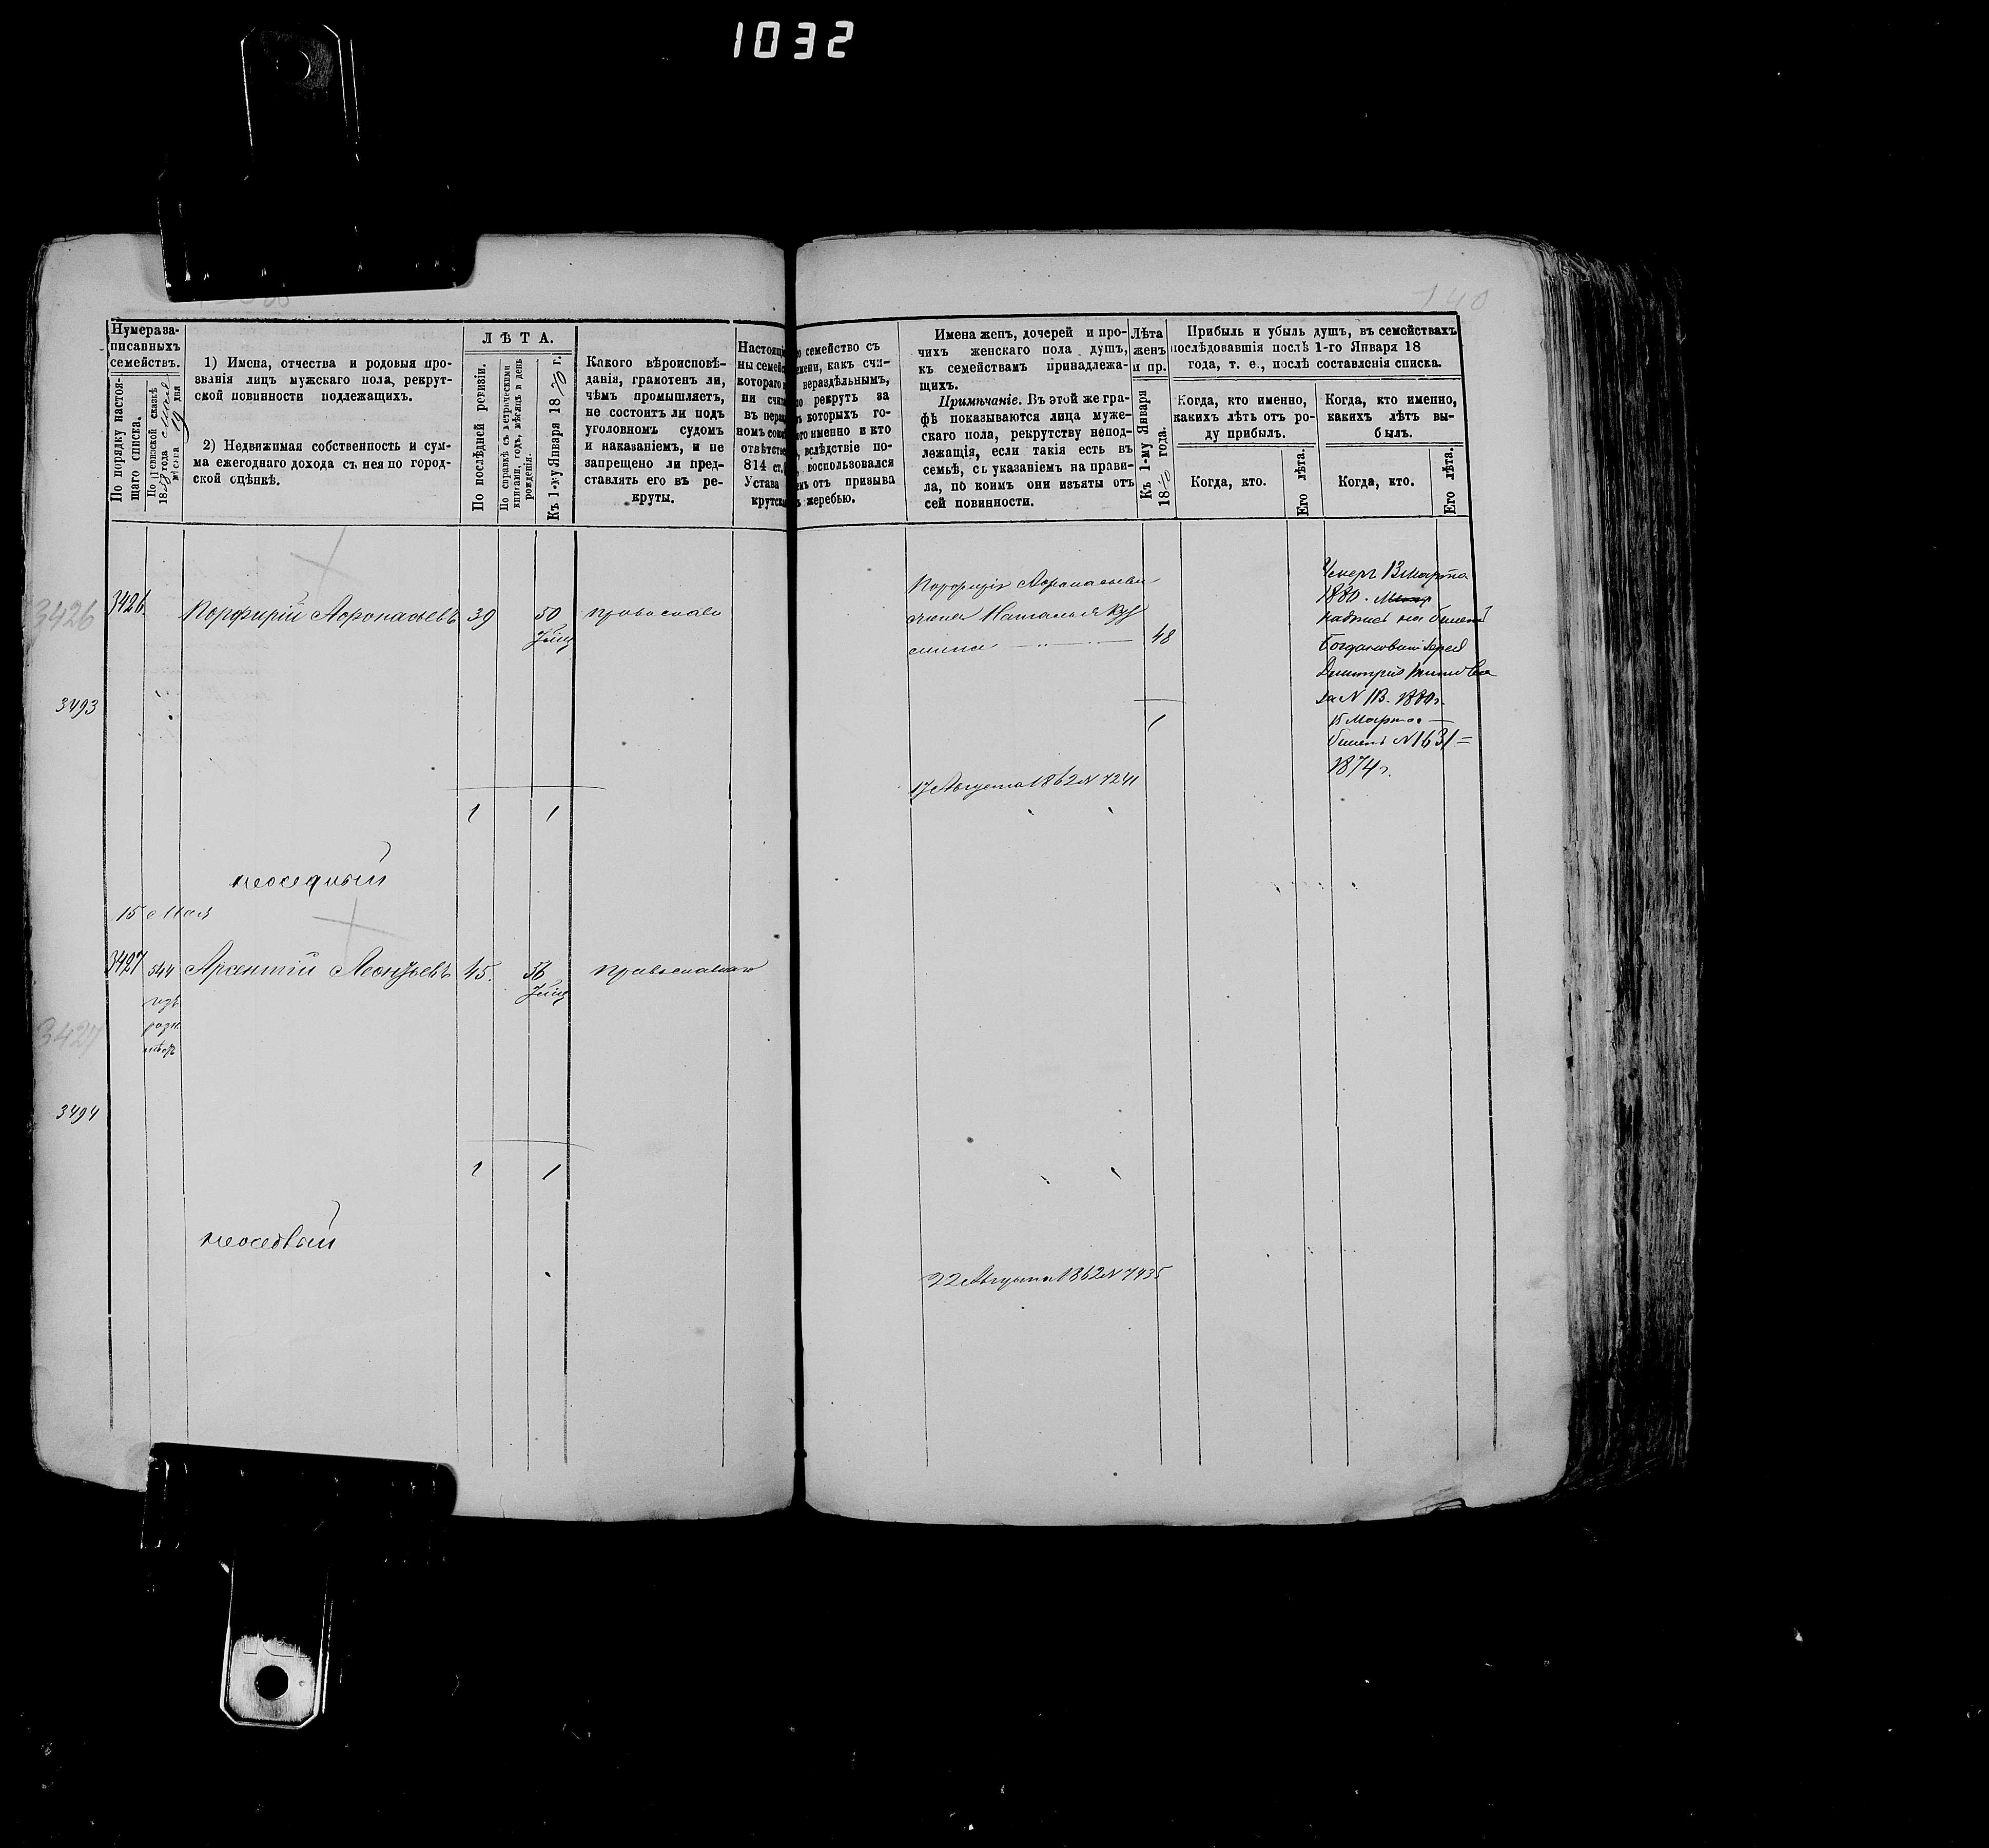 1032
140
Нумера за-
писанныхъ
семействъ.
По порядку настоя-
щаго списка.
По ревизской сказкѣ
18 года
мѣсяца 19 дня
1) Имена, отчества и родовыя про-
званія лицъ мужскаго пола, рекрут-
ской повинности подлежащихъ.
2) Недвижимая собственность и сум-
ма ежегоднаго дохода съ нея по город-
ской оцѣнкѣ.
ЛѢТА.
По послѣдней ревизіи.
По справкѣ съ метрическими
книгами, годъ, мѣсяцъ и день
рожденія.
Къ 1-му Января 1870 г.
Какого вѣроисповѣ-
данія, грамотенъ ли,
чѣмъ промышляетъ,
не состоитъ ли подъ
уголовномъ судомъ
и наказаніемъ, и не
запрещено ли пред-
ставлять его въ ре-
круты.
Настоящ
ны семей
котораго
ни счи
въ нера
номъ
отвѣтств
814 ст.
Устава
крутск
о семейство съ
мени, какъ счи-
нераздѣльнымъ,
рекрутъ за
которыхъ го-
ого именно и кто
вслѣдствіе по-
воспользовался
емъ отъ призыва
жеребью.
Имена женъ, дочерей и про-
чихъ женскаго пола душъ,
къ семействамъ принадлежа-
щихъ.
Примѣчаніе. Въ этой же гра-
фѣ показываются лица муже-
скаго пола, рекрутству непод-
лежащія, если такія есть въ
семьѣ, съ указаніемъ на прави-
ла, по коимъ они изъяты отъ
сей повинности.
Лѣта
женъ
и пр.
Къ 1-му Января
1870 года.
Прибыль и убыль душъ, въ семействахъ
послѣдовавшія послѣ 1-го Января 18
года, т. е., послѣ составленія списка.
Когда, кто именно,
какихъ лѣтъ отъ ро-
ду прибылъ.
Когда, кто именно,
какихъ лѣтъ вы-
былъ.
Когда, кто.
Его лѣта.
Когда, кто.
Его лѣта.
3426
3426
Порфирій Афонасьевъ 39 50 православ
3493
1 1
Порфирія Афонасьева
жена Наталья Куз
мина 48
1
17 Августа 1862 N 7241
Умеръ 13 Марта
1880.
надпись на билетѣ
Дмитрія
за N 113. 1880 г.
15 Марта
билетъ N 1631 =
1874 г.
неоседлый
15 Мая
3427 544 Арсентій Леонтьевъ 45. 56 православнаго
3427
3494
1 1
неоседлый
22 Августа 1862 N 7435